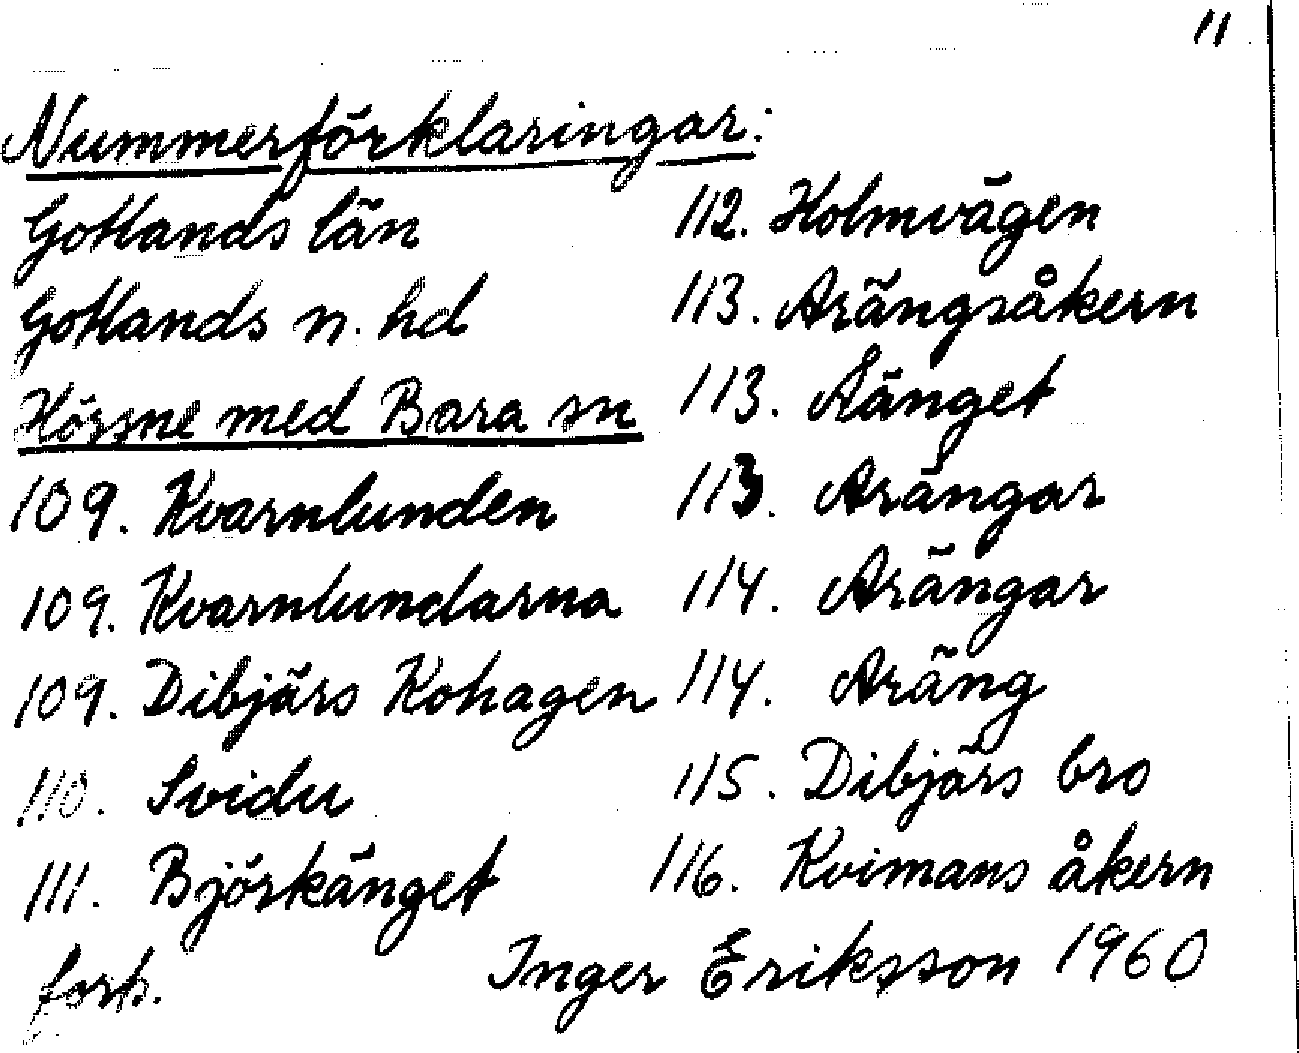 11
Nummerförklaringar:
Gotlands län
Gotlands n. hd
Hörsne med Bara sn
109. Kvarnlunden
109. Kvarnlundarna
109. Dibjärs Kohagen
110. Svidu
111. Björkänget
112. Holmvägen
113. Arängsåkern
113. Åänget
113. Arängar
114. Arängar
114. Aräng
115. Dibjärs bro
116. Kvimans åkern
forts.
Inger Eriksson 1960